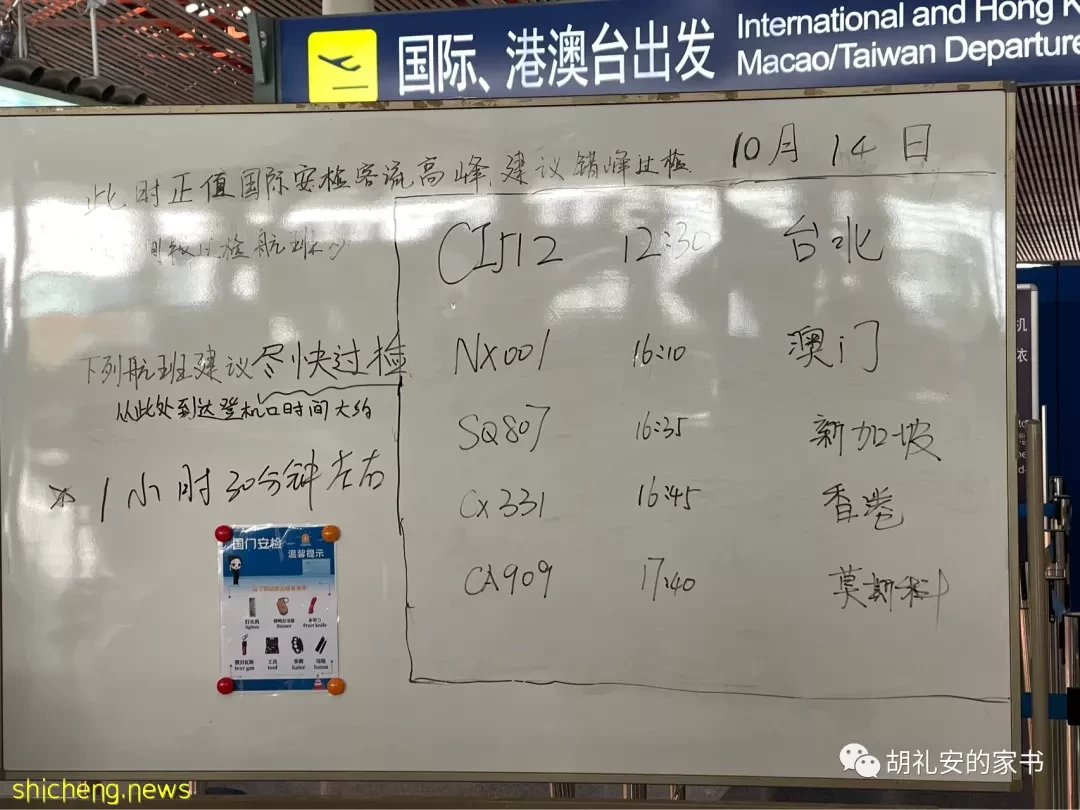 国际、港澳台出发
International and Hong K
Macao/Taiwan Departure
10月 14 日
此时正值国际安检客流高峰,建议错峰过检
CI512 12:30 台北
下列航班建议尽快过检
从此处到达登机口时间大约
1小时30分钟左右
NX001 16:10 澳门
SQ807 16:35 新加坡
CX331 16:45 香港
CA909 17:40 莫斯科
国门安检
温馨提示
打火机
lighter
fruit knife
tear gas
工具
tool
胡礼安的家书
shicheng.news